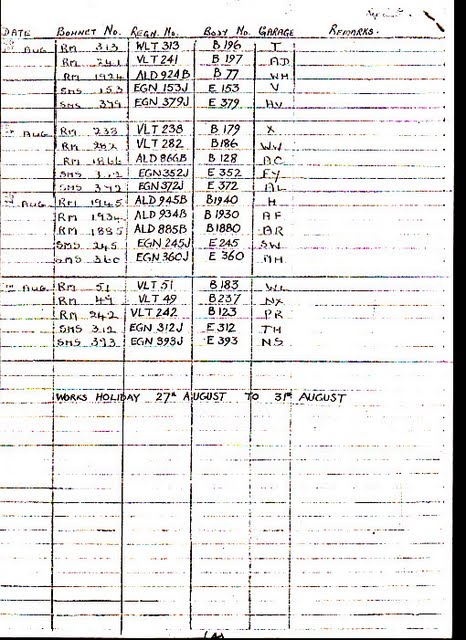 DATE BONNET No. REGN. No. BODY No. GARAGE REMARKS.
AUG RM 313 WLT 313 B196 T
RM 241 VLT 241 B 197 AD
RM 1924 ALD 924B B 77 WH
SMS 153 EGN 153J E 153 V
SMS 379 EGN 379J E 379 HV
AUG RM 238 VLT 238 B 179 X
RM 282 VLT 282 B186 WW
RM 1866 ALD 866B B 128 BC
SMS 352 EGN352J E 352 FY
SMS 372 EGN372J E 372 AL
AUG RM 1945 ALD 945B B1940 H
RM 1934 ALD 934B B 1930 AF
RM 1885 ALD 885B B1880 BR
SMS 245 EGN 245J E245 SW
SMS 360 EGN 360J E 360 MH
AUG RM 51 VLT 51 B183 WL
RM 49 VLT 49 B237 NX
RM 242 VLT 242 B123 PR
SMS 312 EGN 312J E 312 TH
SMS 393 EGN 393J E 393 NS
WORKS HOLIDAY 27th AUGUST TO 31st AUGUST